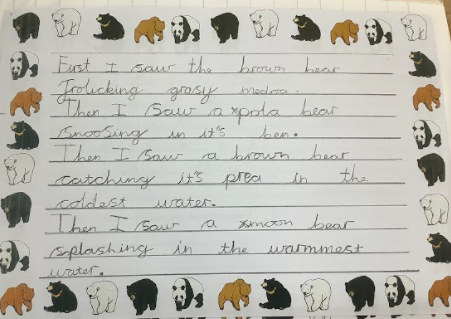 First I saw the brown bear
frolicking grasy medoa.
Then I saw a xpola bear
snoosing in it's den.
Then I saw a brown bear
catching it's prea in the
coldest water.
Then I saw a xmoon bear
splashing in the warmmest
water.